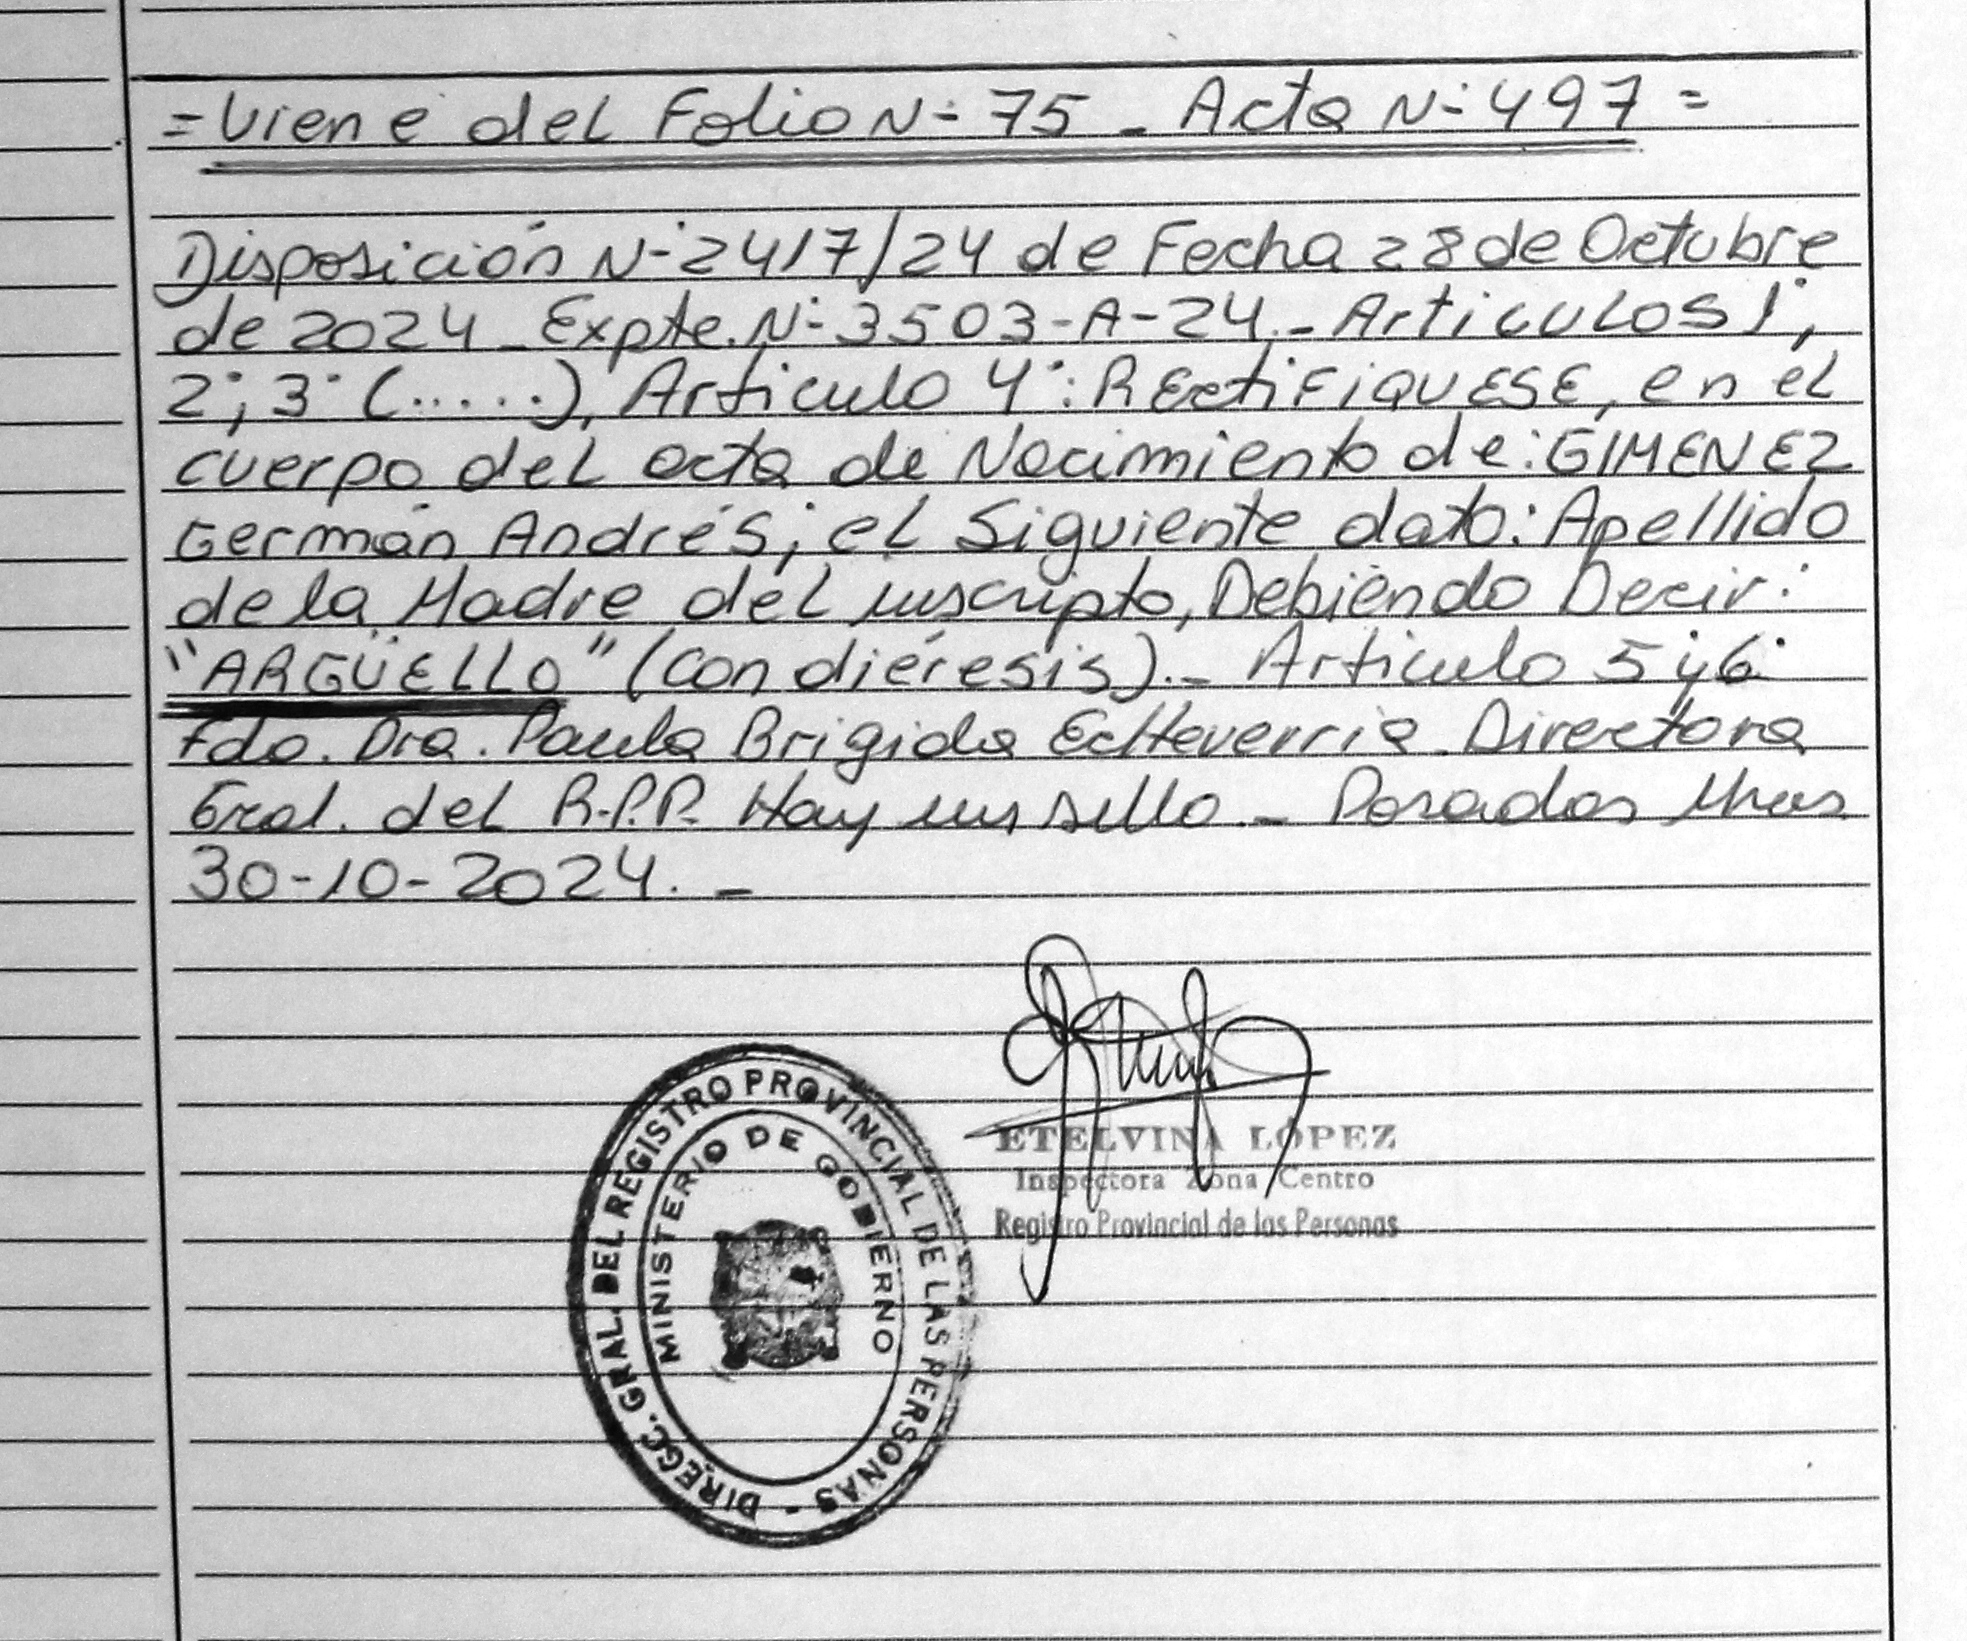 = Viene del Folio N° 75 - Acta N° 497 =
Disposición N° 2417/24 de Fecha 28 de Octubre
de 2024 - Expte. N° 3503-A-24.- Articulos 1°,
2°, 3° (.....), Articulo 4°: RECTIFIQUESE, en el
cuerpo del acta de Nacimiento de: GIMENEZ
Germán Andrés; el Siguiente dato: Apellido
de la Madre del inscripto, Debiendo Decir:
"ARGÜELLO" (con diéresis).- Articulo 5° y 6°
Fdo. Dra. Paula Brigida Echeverria. Directora
Gral. del R.P.P. Hay un sello.- Posadas Mnes
30-10-2024.-
ETELVINA LÓPEZ
Inspectora Zona Centro
Registro Provincial de las Personas
DIRECC. GRAL. DEL REGISTRO PROVINCIAL DE LAS PERSONAS -
MINISTERIO DE GOBIERNO